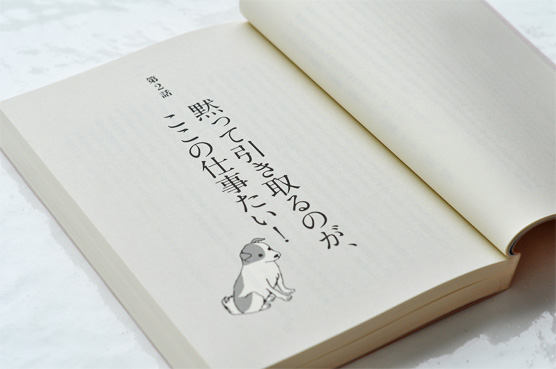 第2話
黙って引き取るのが、
ここの仕事たい！